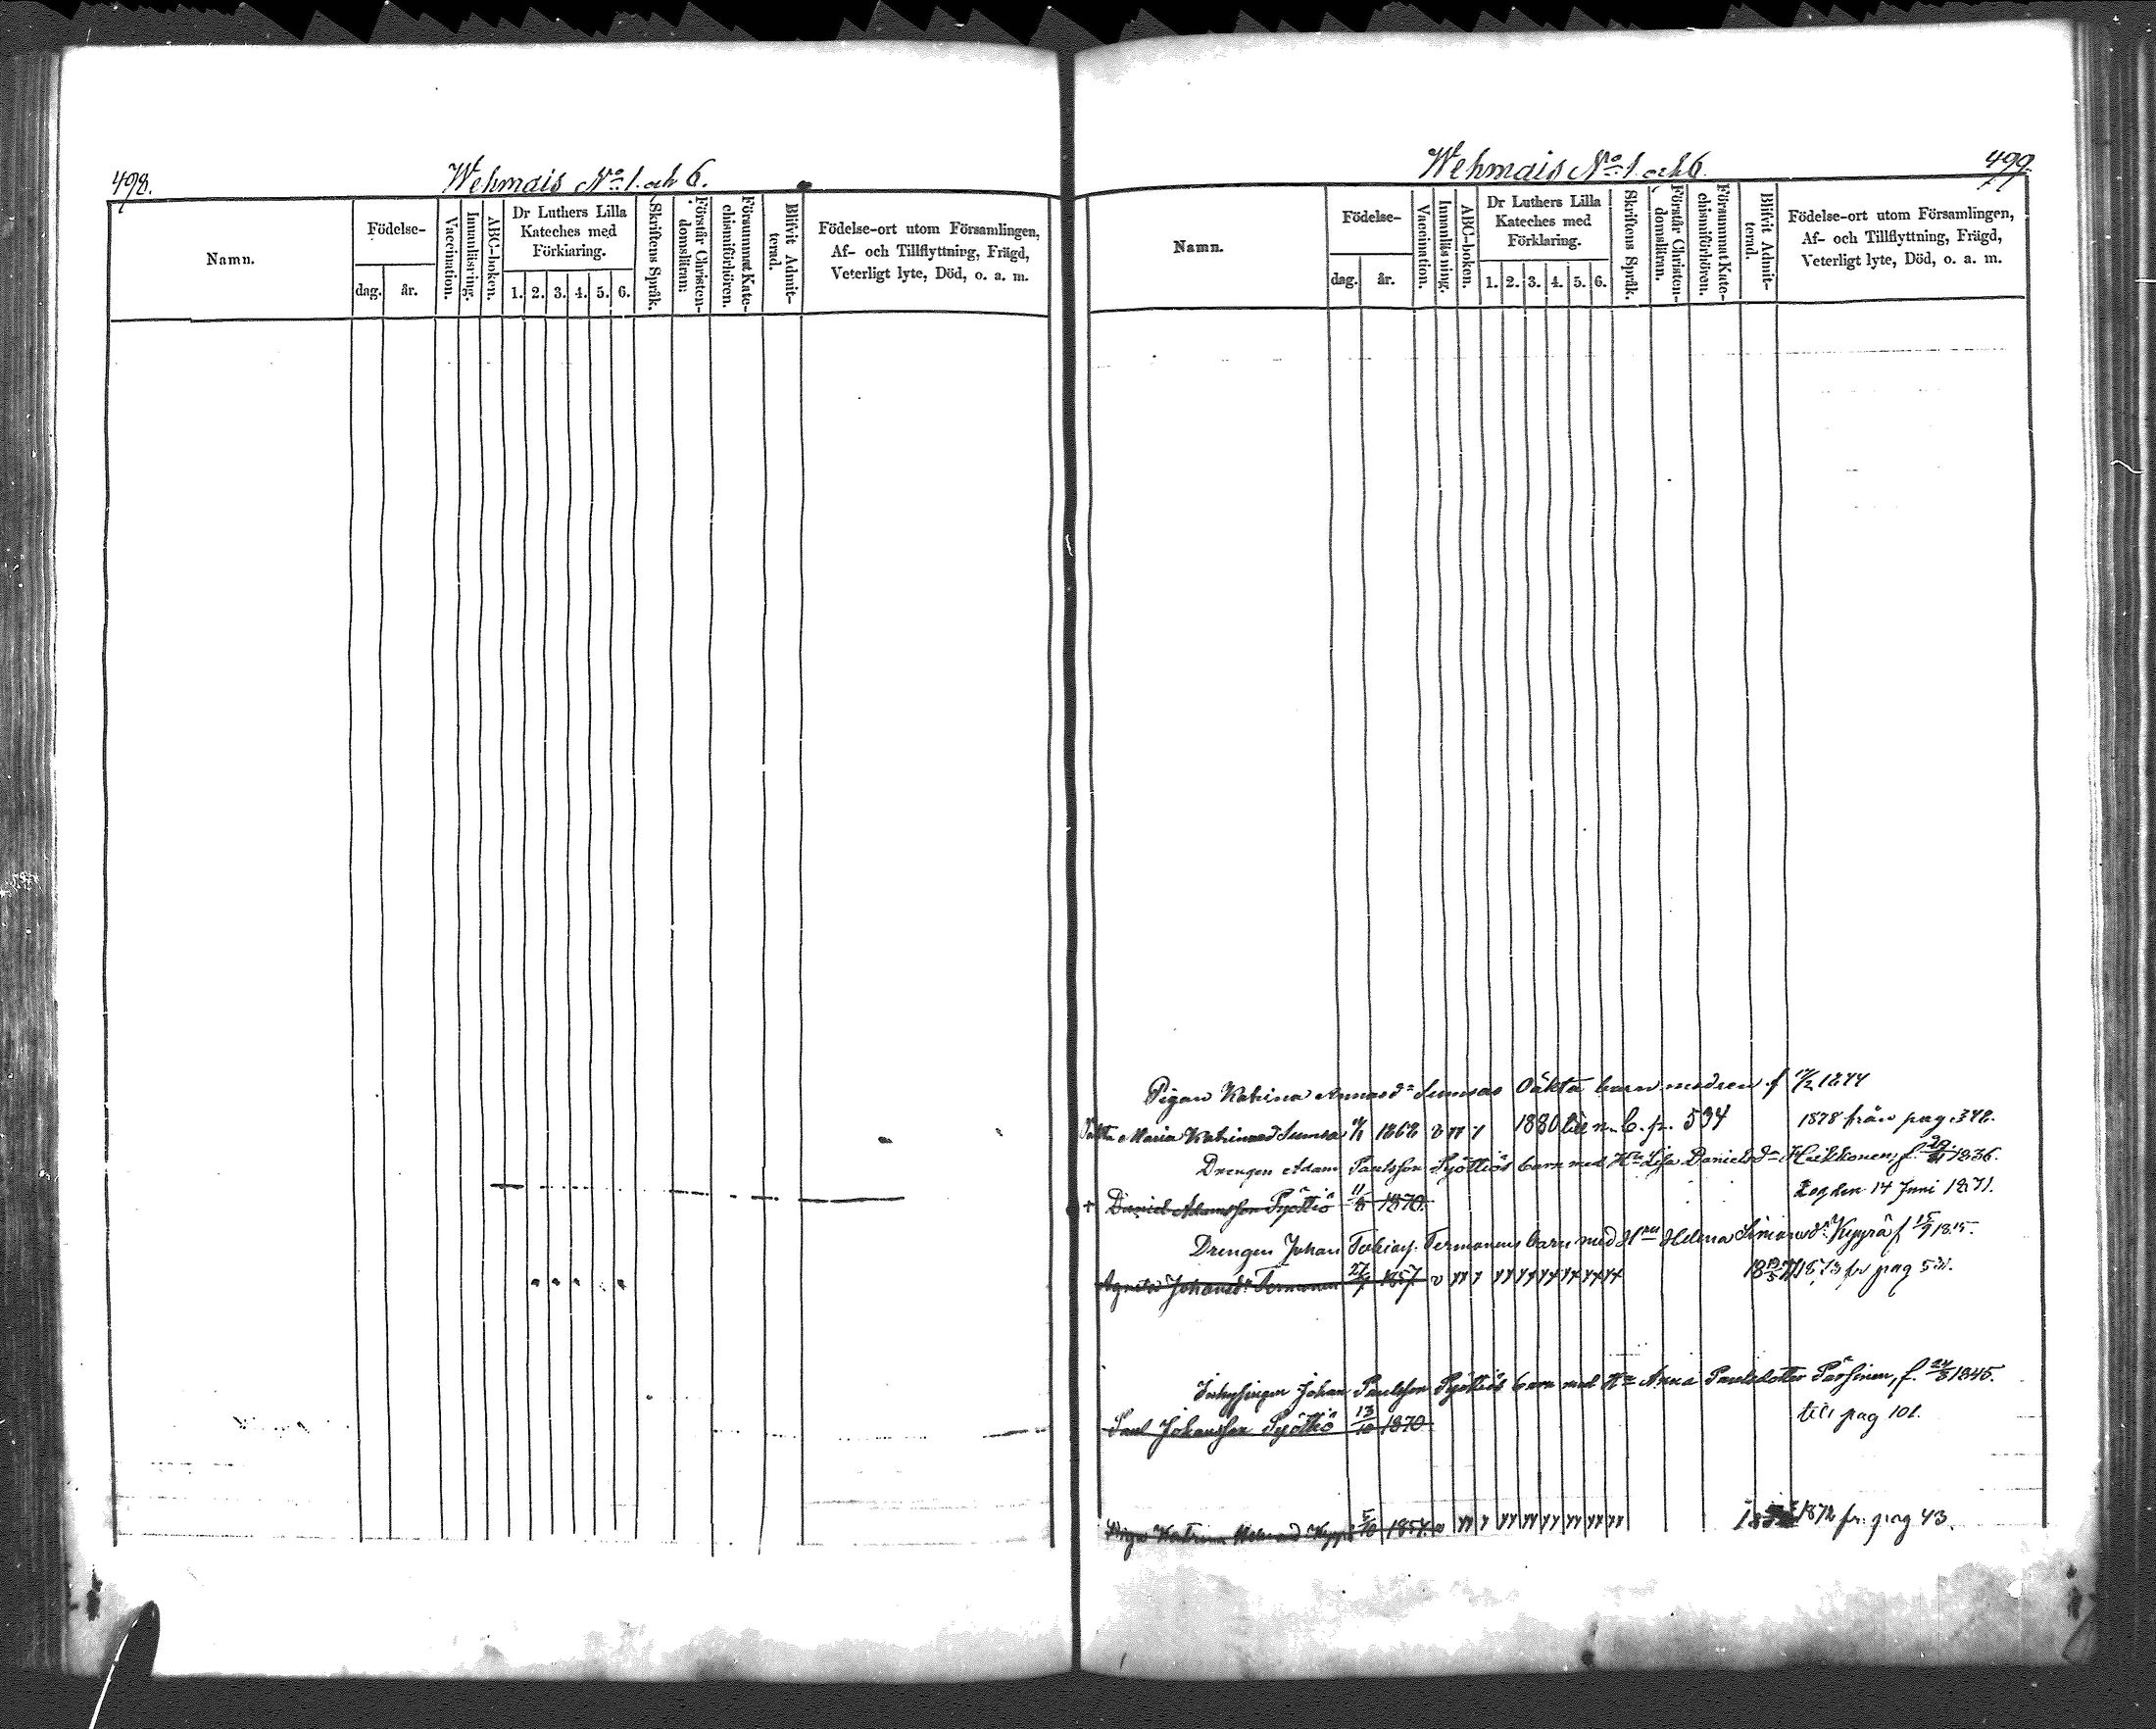 498.
Wehmais No 1. och 6.
Namn.
Födelse-
dag.
år.
Vaccination.
Innanläsning.
ABC-boken.
Dr Luthers Lilla
Kateches med
Förklaring.
1. 2. 3. 4. 5. 6.
Skriftens Språk.
Förstår Christen-
domsläran.
Försummat Kate-
chismiförhören.
Blifvit Admit-
terad.
Födelse-ort utom Församlingen,
Af- och Tillflyttning, Frägd,
Veterligt lyte, Död, o. a. m.
Wehmais No 1. och 6.
499.
Namn.
Födelse-
dag.
år.
Vaccination.
Innanläsning.
ABC-boken.
Dr Luthers Lilla
Kateches med
Förklaring.
1. 2. 3. 4. 5. 6.
Skriftens Språk.
Förstår Christen-
domsläran.
Försummat Kate-
chismiförhören.
Blifvit Admit-
terad.
Födelse-ort utom Församlingen,
Af- och Tillflyttning, Frägd,
Veterligt lyte, Död, o. a. m.
Pigan Katrina Annasd. Sumsas Oäkta barn modren f. 1844
Maria Katrinasd Sumsa 1868 v 1880 till n. b. p. 534 1878 från pag. 348.
Drengen Adam Paulsson Pyöttiös barn med Hu Lisa Danielsd. Heikkonen, f. 1836.
+ Daniel Adamsson Pyöttiö 11/8 1870. dog den 14 Juni 1871.
Drengen Johan Tobiass. Termonens barn med Hu Helena Simonsd. Kyyrä f. 15/9 1815.
Agneta Johansd. Termonen 27/7 1857 v 1873 fr pag
Inhysingen Johan Paulsson Pyöttiös barn med Hu Anna Paulsdotter Pärssinen, f. 24/8 1845.
Paul Johansson Pyöttiö 13/10 1870 till pag 101.
Pigan Katrina 1854. v 1872 fr. pag 43.